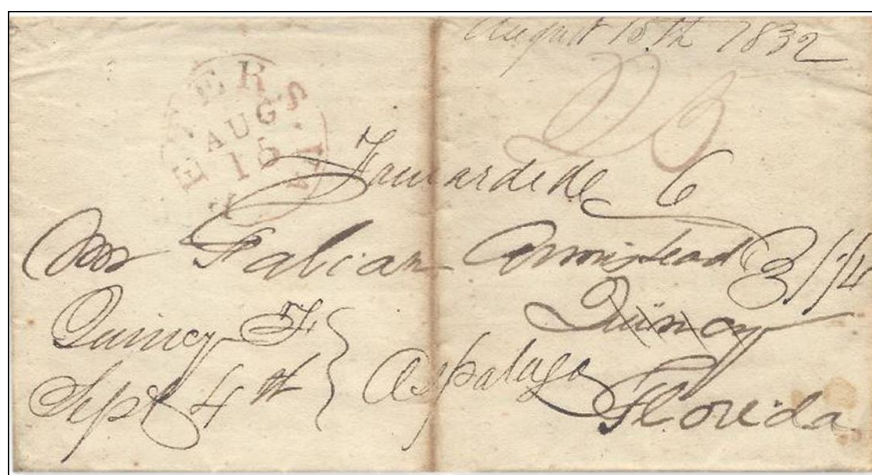 August 15th 1832
PETERSBG Va
AUG
15
25
Forwarded 6
Mr Fabian Armistead 3/14
Quincy
Quincy F
Sept 4th } Aspalaga
Florida